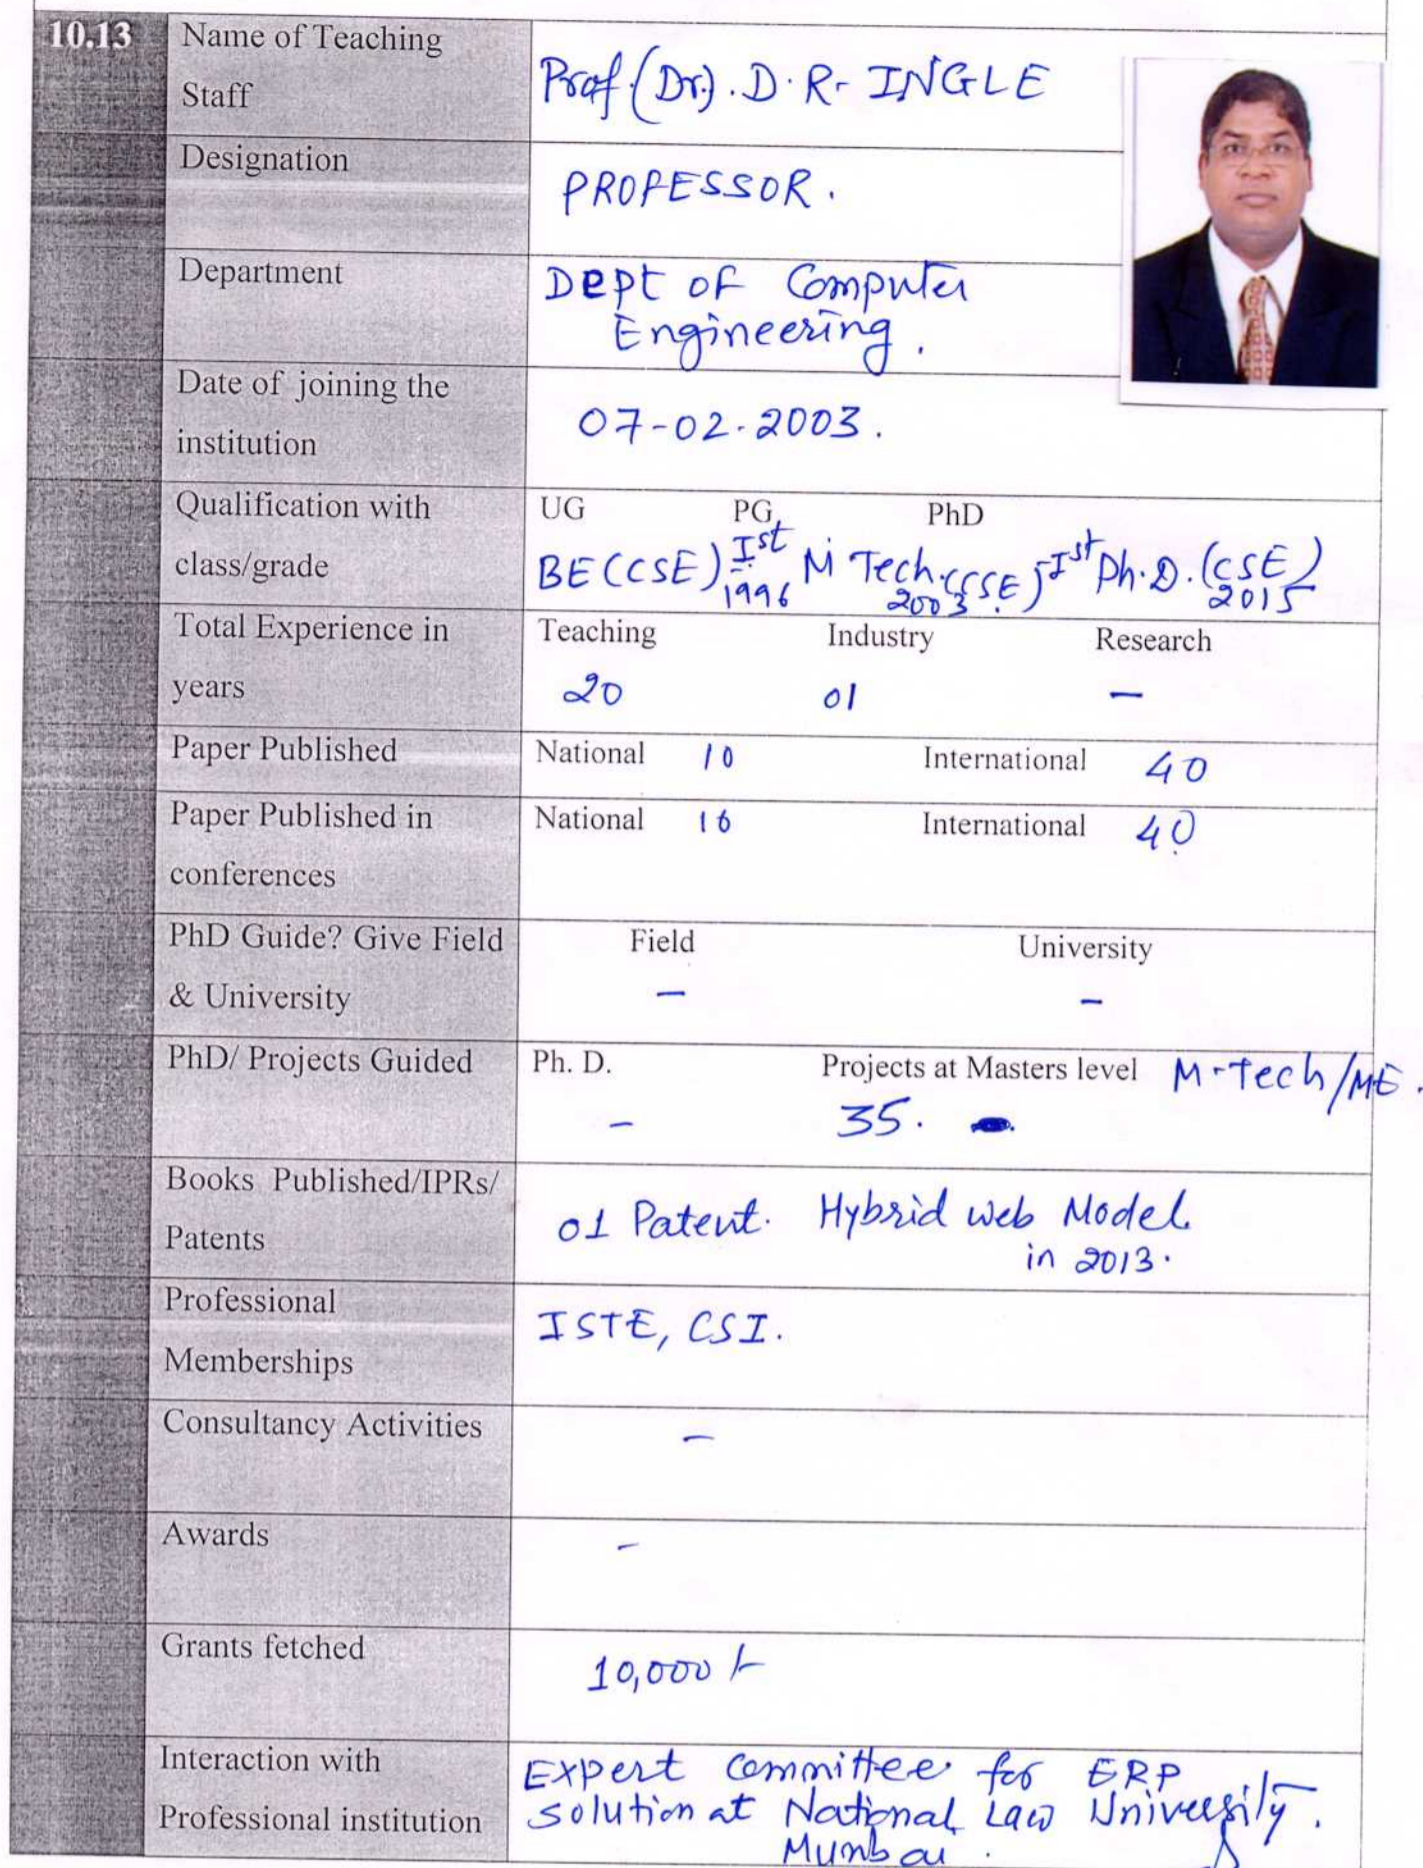 10.13 Name of Teaching Staff
Prof.(Dr.). D. R. INGLE
Designation
PROFESSOR.
Department
Dept of Computer
Engineering.
Date of joining the
institution
07-02-2003.
Qualification with
class/grade
UG PG PhD
BE(CSE) Ist 1996 M Tech.(CSE) Ist 2003. Ph.D.(CSE) 2015
Total Experience in
years
Teaching Industry Research
20 01 –
Paper Published
National 10 International 40
Paper Published in
conferences
National 16 International 40
PhD Guide? Give Field
& University
Field University
– –
PhD/ Projects Guided
Ph. D. Projects at Masters level M-Tech/ME.
– 35.
Books Published/IPRs/
Patents
01 Patent. Hybrid web Model
in 2013.
Professional
Memberships
ISTE, CSI.
Consultancy Activities
–
Awards
–
Grants fetched
10,000/-
Interaction with
Professional institution
Expert committee for ERP
solution at National Law University.
Mumbai.